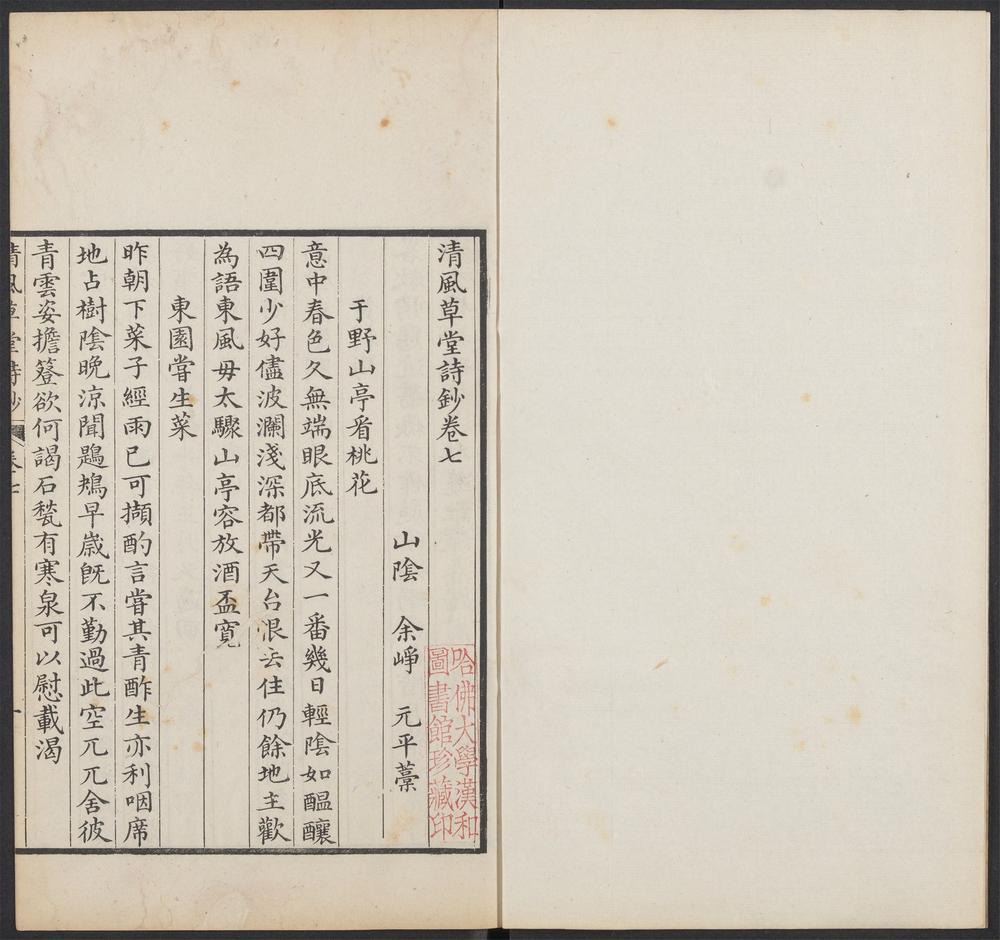 清風草堂詩鈔卷七
山陰　余崢　元平藁
于野山亭看桃花
意中春色久無端眼底流光又一番幾日輕陰如醖釀
四圍少好儘波瀾淺深都帶天台恨去住仍餘地主歡
為語東風毋太驟山亭容放酒盃寬
東園嘗生菜
昨朝下菜子經雨已可擷酌言嘗其青酢生亦利咽席
地占樹陰晚涼聞鶗鴂早嵗旣不勤過此空兀兀舍彼
青雲姿擔簦欲何謁石甃有寒泉可以慰載渴
清風草堂詩鈔
卷七
一
哈佛大學漢和
圖書館珍藏印